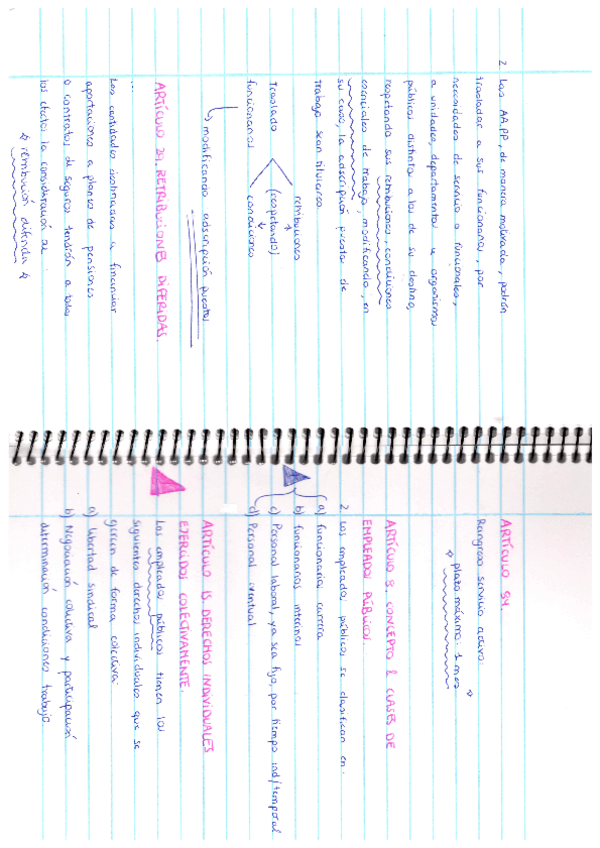 2. Las AA.PP, de manera motivada, podrán
trasladar a sus funcionarios, por
necesidades de servicio o funcionales,
a unidades, departamentos u organismos
públicos distintos a los de su destino,
respetando sus retribuciones, condiciones
esenciales de trabajo, modificando, en
su caso, la adscripción puestos de
trabajo sean titulares
retribuciones
Traslado (respetando)
funcionarios condiciones
modificando adscripción puestos
ARTÍCULO 29. RETRIBUCIONES DIFERIDAS.
...
Las cantidades destinadas a financiar
aportaciones a planes de pensiones
o contratos de seguros tendrán a todos
los efectos la consideración de
retribución diferida
ARTÍCULO 84.
Reingreso servicio activo:
plazo máximo: 1 mes
ARTÍCULO 8. CONCEPTO & CLASES DE
EMPLEADOS PÚBLICOS.
2. Los empleados públicos se clasifican en:
a) funcionarios carrera
b) funcionarios interinos
c) Personal laboral, ya sea fijo, por tiempo ind/temporal
d) Personal eventual
ARTÍCULO 15. DERECHOS INDIVIDUALES
EJERCIDOS COLECTIVAMENTE.
Los empleados públicos tienen los
siguientes derechos individuales que se
ejercen de forma colectiva:
a) libertad sindical
b) Negociación colectiva y participación
determinación condiciones trabajo.